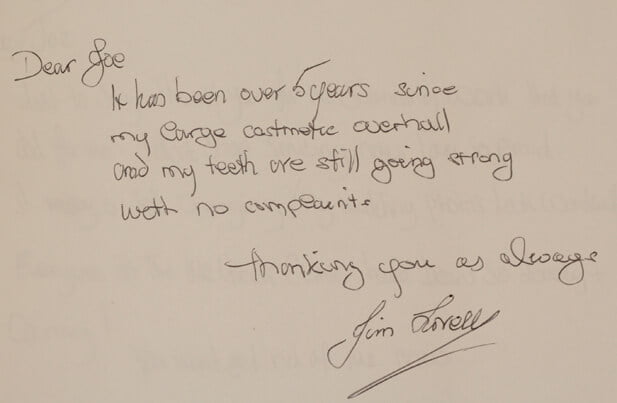 Dear Joe
It has been over 5 years since
my large castmetic overhall
and my teeth are still going strong
with no complaints
thanking you as always
Jim Lovell